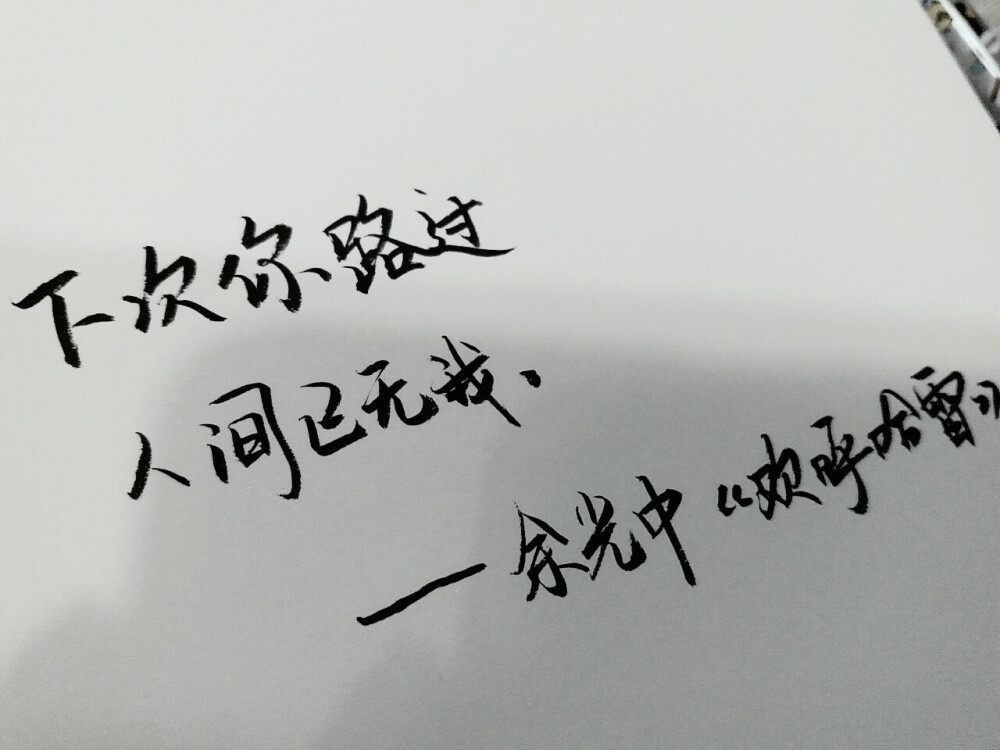 下次你路过
人间已无我.
—余光中《欢呼哈雷》